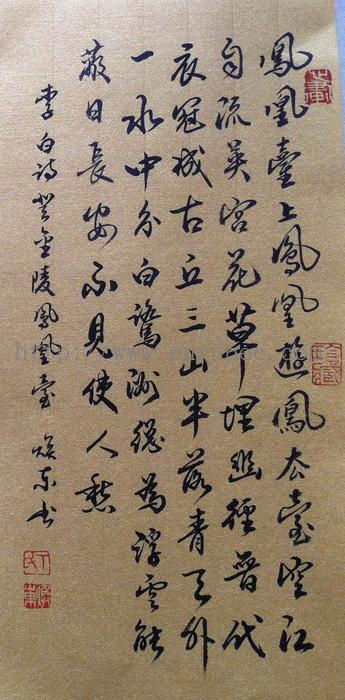 鳳凰臺上鳳凰遊鳳去臺空江
自流吳宮花草埋幽徑晉代
衣冠成古丘三山半落青天外
一水中分白鷺洲總為浮雲能
蔽日長安不見使人愁
李白詩登金陵鳳凰臺 煥東书